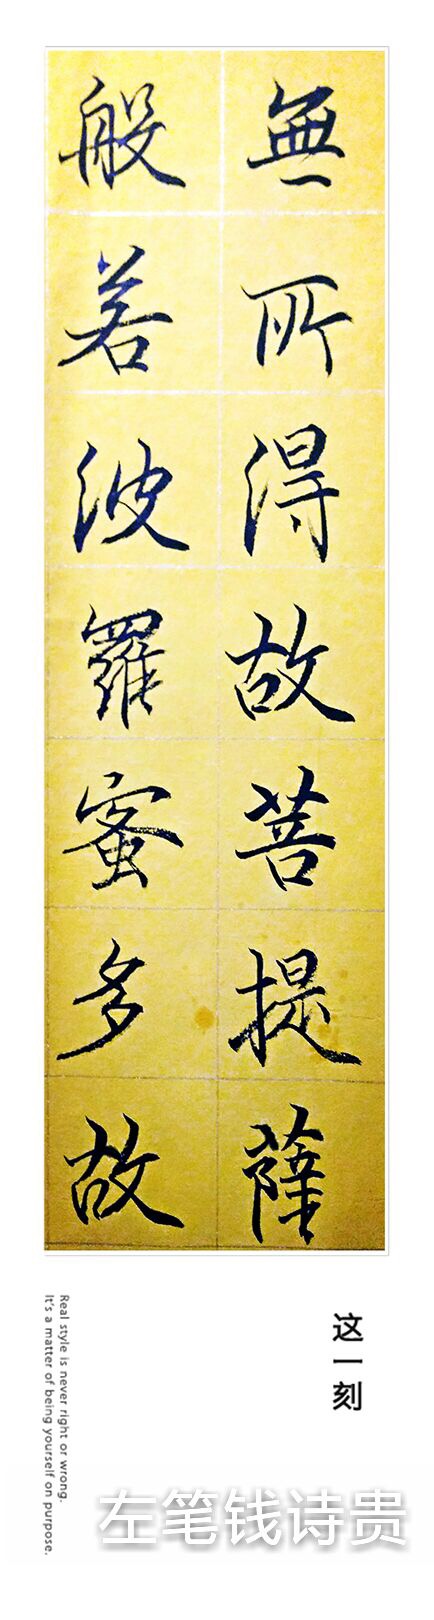 無所得故菩提薩
般若波羅蜜多故
这一刻
Real style is never right or wrong.
It's a matter of being yourself on purpose.
左笔钱诗贵